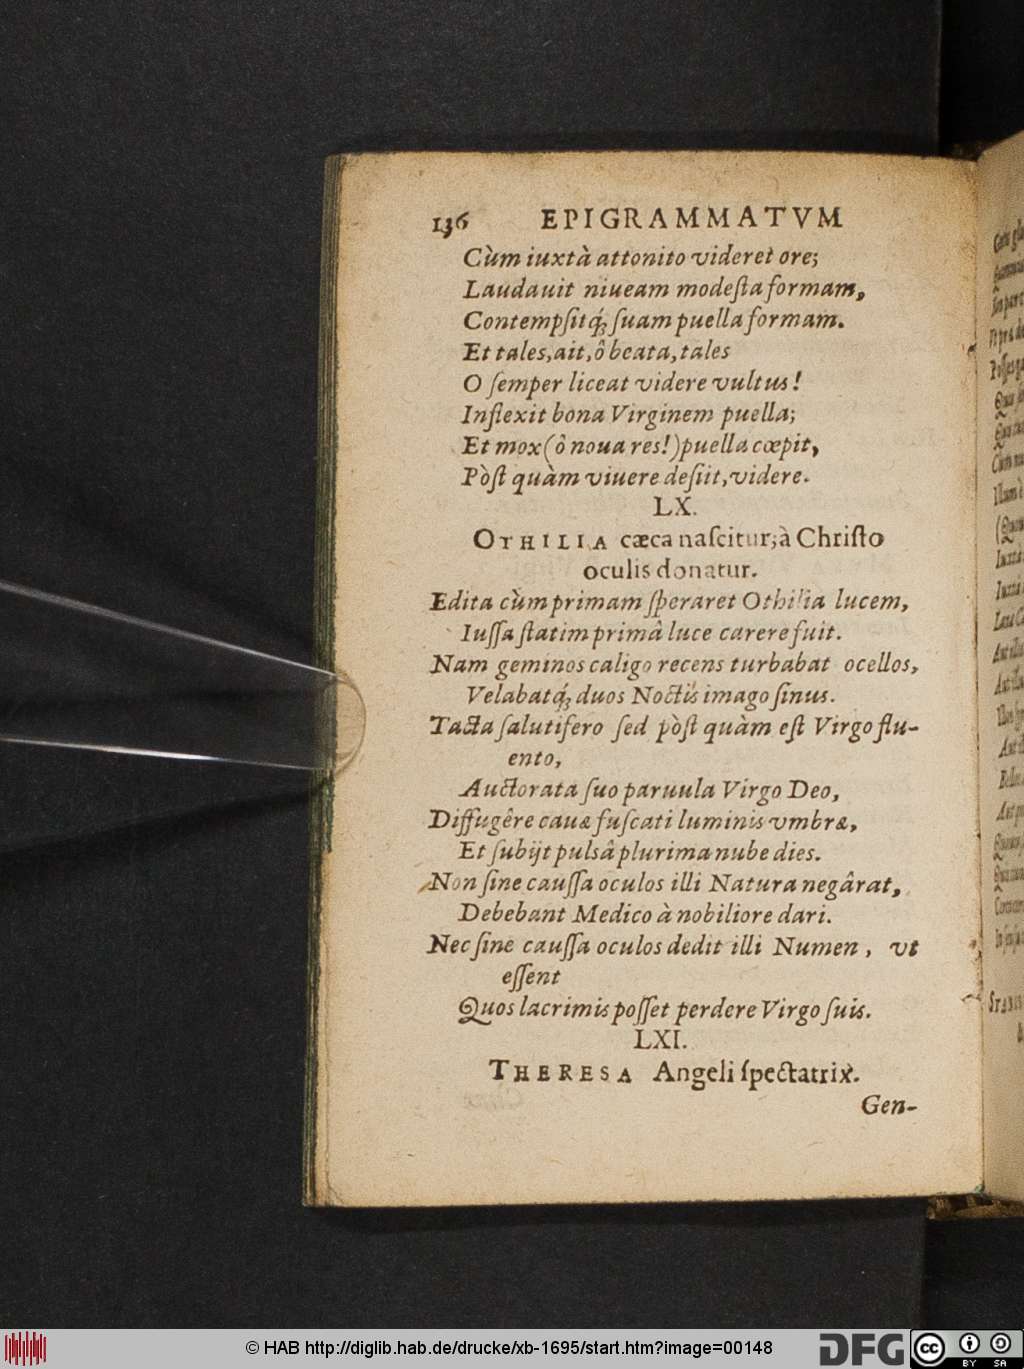 136 EPIGRAMMATVM
Cùm iuxtà attonito videret ore;
Laudauit niueam modeſta formam,
Contempſitq́; ſuam puella formam.
Et tales, ait, ô beata, tales
O ſemper liceat videre vultus!
Inflexit bona Virginem puella;
Et mox (ô noua res!) puella cœpit,
Pòſt quàm viuere deſiit, videre.
LX.
OTHILIA cæca naſcitur; à Chriſto
oculis donatur.
Edita cùm primam ſperaret Othilia lucem,
Iuſſa ſtatim primâ luce carere fuit.
Nam geminos caligo recens turbabat ocellos,
Velabatq́; duos Noctis imago ſinus.
Tacta ſalutifero ſed pòſt quàm eſt Virgo flu-
ento,
Auctorata ſuo paruula Virgo Deo,
Diffugêre cauæ fuſcati luminis vmbræ,
Et ſubijt pulsâ plurima nube dies.
Non ſine cauſſa oculos illi Natura negârat,
Debebant Medico à nobiliore dari.
Nec ſine cauſſa oculos dedit illi Numen, vt
eſſent
Quos lacrimis poſſet perdere Virgo ſuis.
LXI.
THERESA Angeli ſpectatrix.
Gen-
© HAB http://diglib.hab.de/drucke/xb-1695/start.htm?image=00148
DFG
cc
BY SA